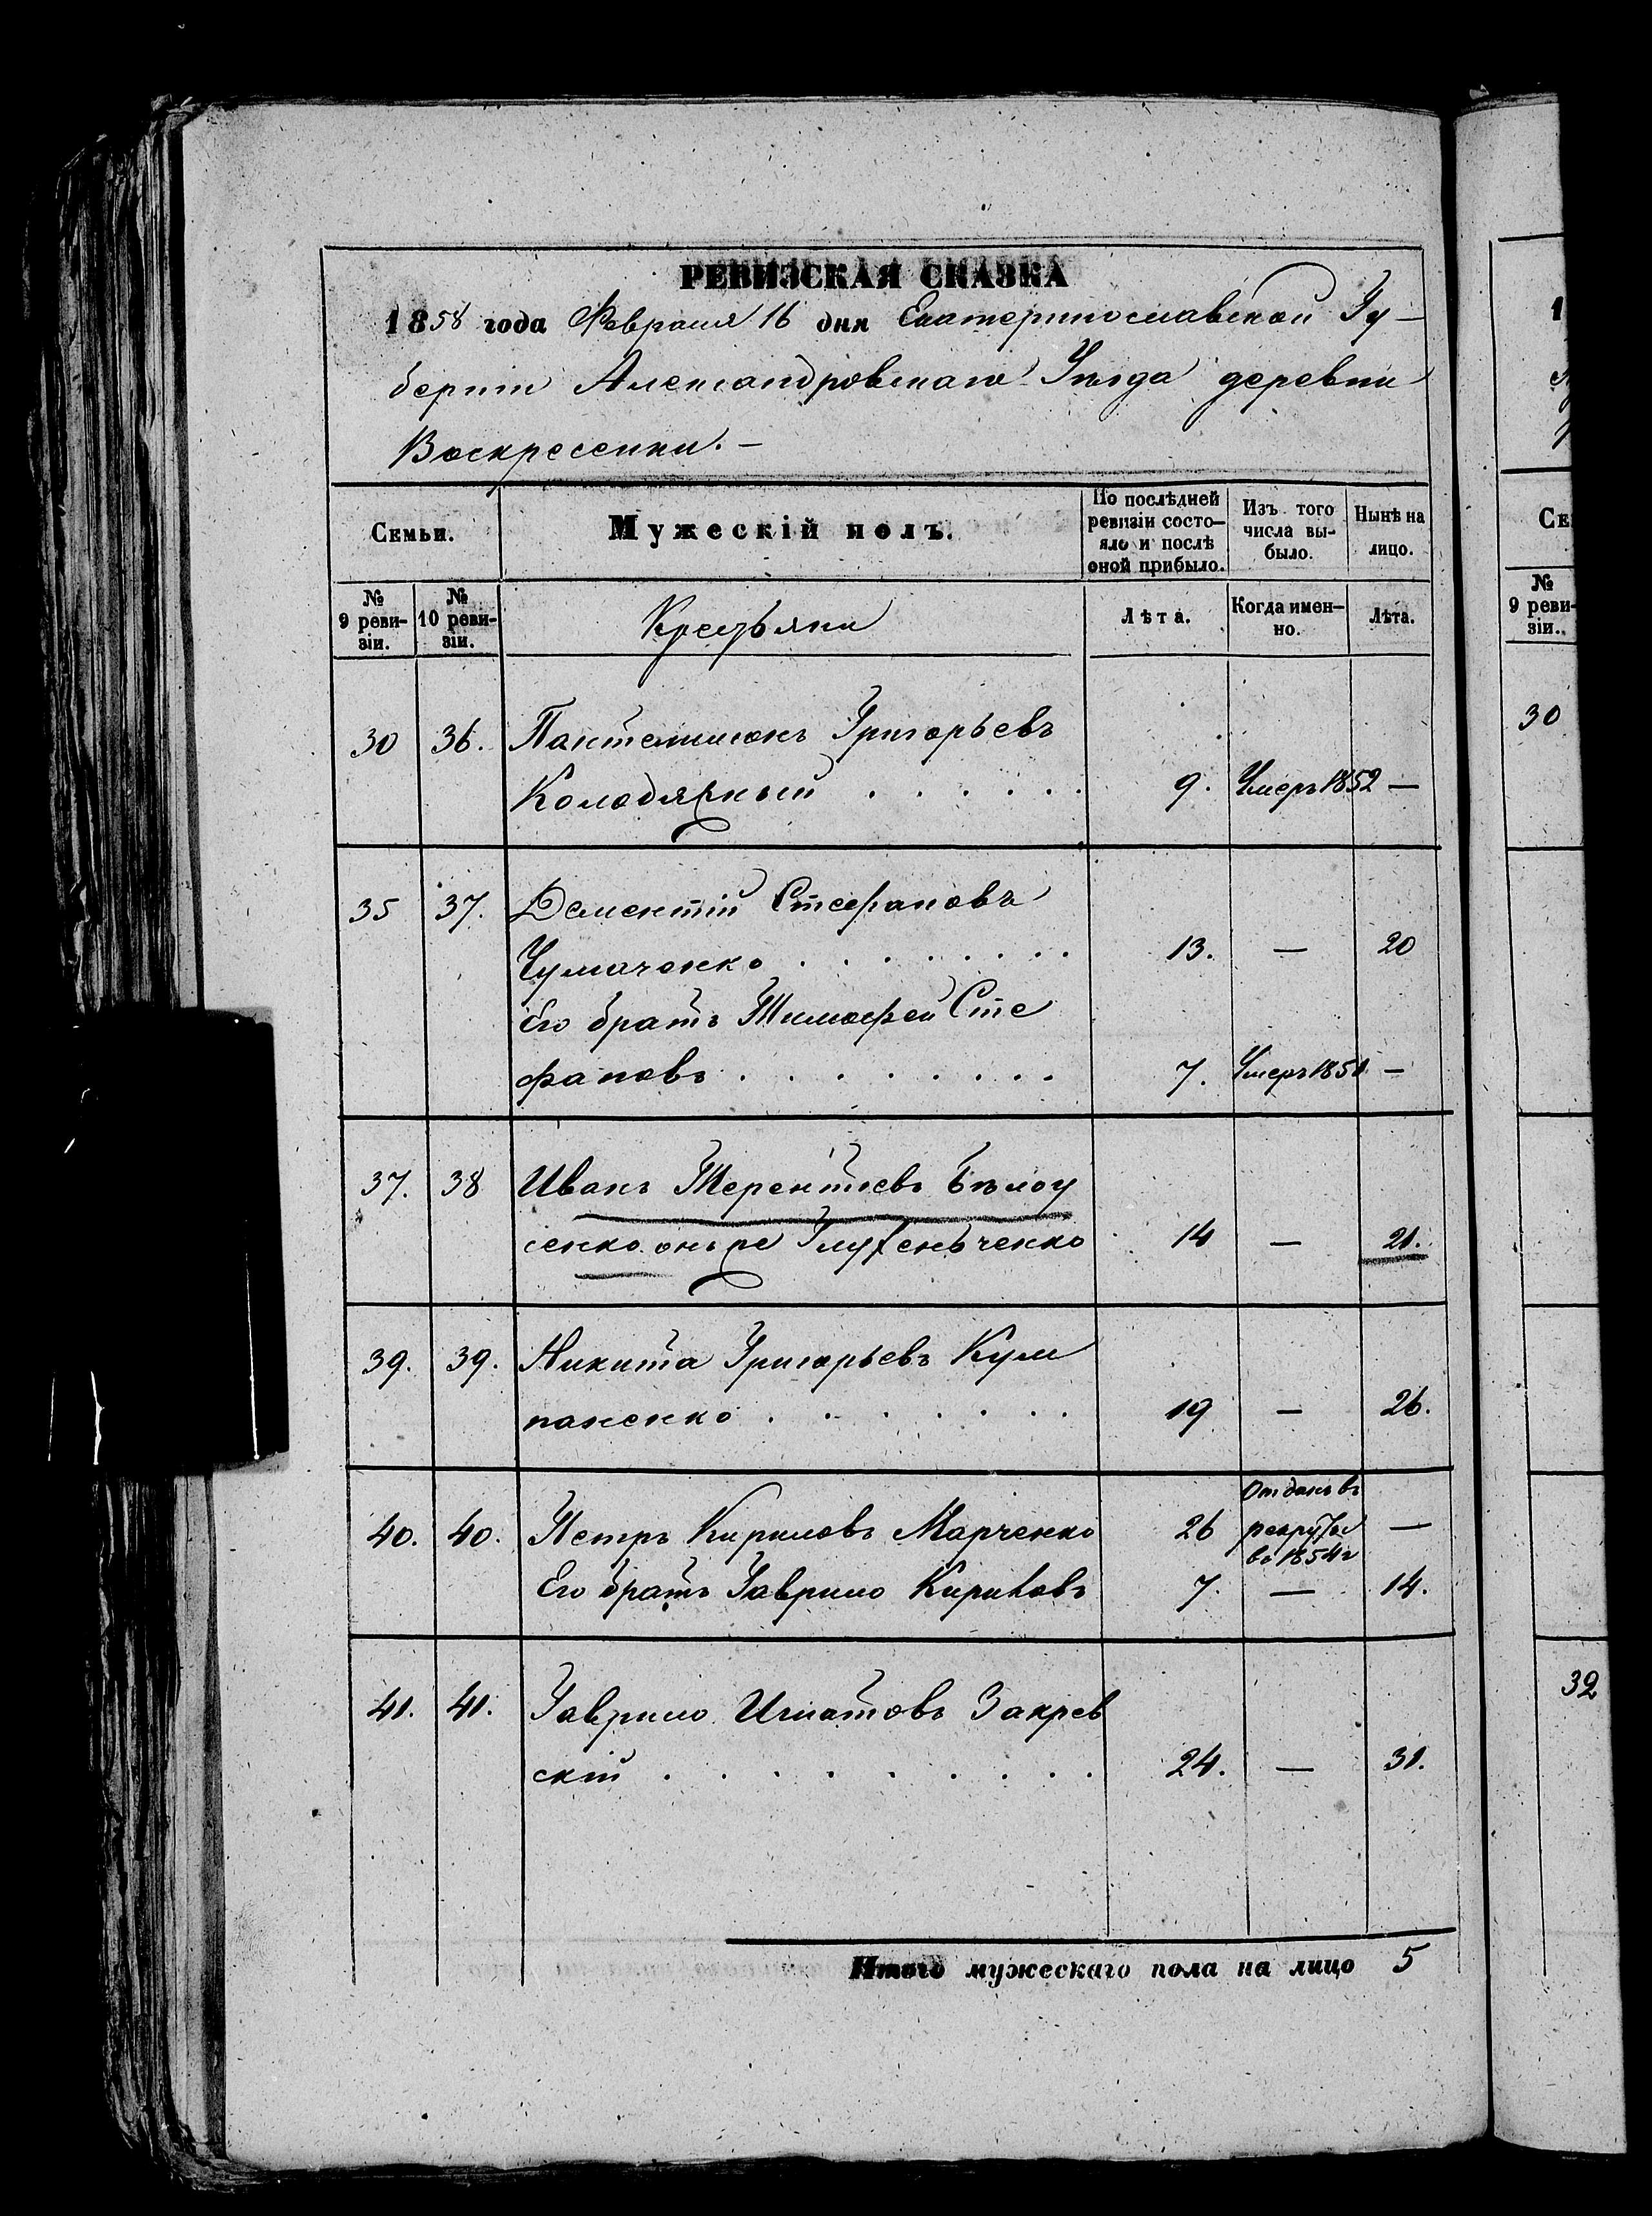 РЕВИЗСКАЯ СКАЗКА
1858 года Февраля 16 дня Екатеринославской Гу-
берніи Александровскаго Уѣзда деревни
Воскресенки.-
Семьи.
Мужескій полъ.
По послѣдней ревизіи состо-яло и послѣ оной прибыло.
Изъ того числа вы-было.
Нынѣ на лицо.
№ 9 реви-зіи.
№ 10 реви-зіи.
Крестьяни
Лѣта.
Когда имен-но.
Лѣта.
30 36. Пантелимонъ Григорьевъ
Колодяжный . . . . . . 9. Умеръ 1852 —
35 37. Дементій Стефановъ
Чумаченко . . . . . . . . 13. — 20
Его братъ Тимофей Сте
фановъ . . . . . . . . 7. Умеръ 1851 —
37. 38 Иванъ Терентіевъ Бѣлоу
сенко онъ ре Глухеньченко 14 — 21.
39. 39. Никита Григорьевъ Кум
паненко . . . . . . . 19 — 26.
40. 40. Петръ Кириловъ Марченко 26 Отданъ въ рекруты въ 1854 г —
Его братъ Гаврило Кириловъ 7. — 14.
41. 41. Гаврило Игнатовъ Закрев
скій . . . . . . . . . 24. — 31.
Итого мужескаго пола на лицо 5
1
Се
№ 9 реви-зіи.
30
32